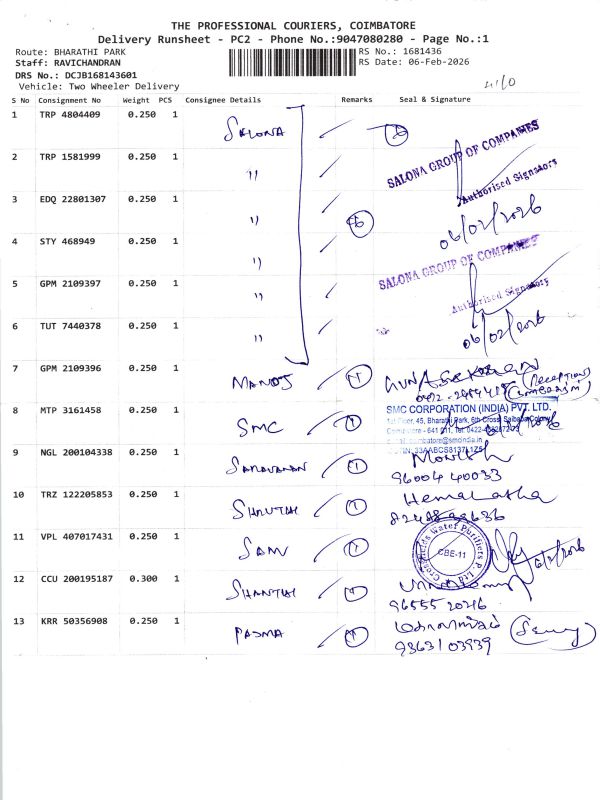 THE PROFESSIONAL COURIERS, COIMBATORE
Delivery Runsheet - PC2 - Phone No.:9047080280 - Page No.:1
Route: BHARATHI PARK
RS No.: 1681436
Staff: RAVICHANDRAN
RS Date: 06-Feb-2026
DRS No.: DCJB168143601
Vehicle: Two Wheeler Delivery
S No Consignment No Weight PCS Consignee Details Remarks Seal & Signature
1 TRP 4804409 0.250 1 SALONA 6
SALONA GROUP OF COMPANIES
Authorised Signatory
2 TRP 1581999 0.250 1 "
06/02/2026
3 EDQ 22801307 0.250 1 " 6
4 STY 468949 0.250 1 "
SALONA GROUP OF COMPANIES
5 GPM 2109397 0.250 1 "
Authorised Signatory
6 TUT 7440378 0.250 1 "
06/02/2026
7 GPM 2109396 0.250 1 MANOJ 1
8 MTP 3161458 0.250 1 SMC 1
SMC CORPORATION (INDIA) PVT. LTD.
1st Floor, 45, Bharathi Park, 6th Cross, Saibaba Colony
9 NGL 200104338 0.250 1 SARAVANAN 1
96004 40033
10 TRZ 122205853 0.250 1 SHRUTHI 1 Hemalatha
11 VPL 407017431 0.250 1 SAM 1
Water Purifiers P. Ltd
CBE-11
6/2/2026
12 CCU 200195187 0.300 1 SHANTHI 1
96555 20216
13 KRR 50356908 0.250 1 PADMA 1
93631 03939